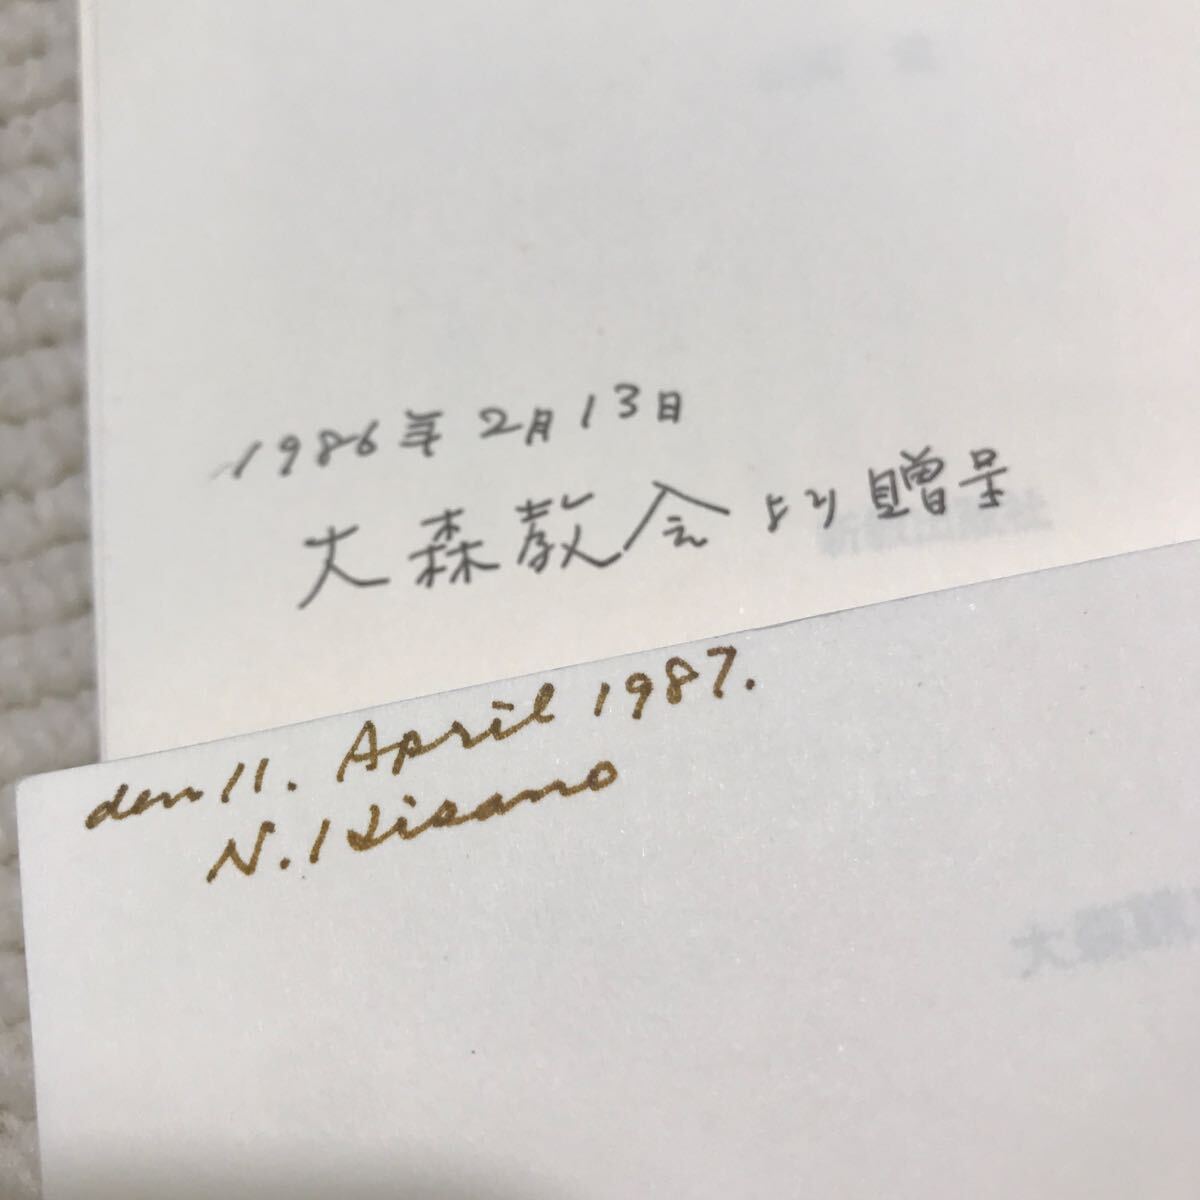 1986年2月13日
大森教会より贈呈
den 11. April 1987.
N. Hisano